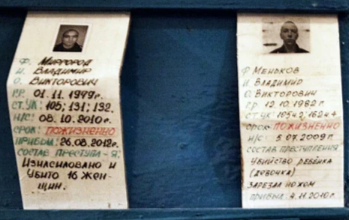 Ф. Миргород
И. Владимир
О. Викторович
Г.Р. 01.11.1979г.
СТ.УК: 105; 131; 132.
Н/С: 08.10.2010г.
СРОК: ПОЖИЗНЕННО
ПРИБЫЛ: 26.08.2012г.
СОСТАВ ПРЕСТУПЛ-Я:
Изнасиловано и
Убито 16 жен-
щин.
Ф. Меньков
И. Владимир
О. Викторович
Г.Р. 12.10.1982г
СТ.УК
СРОК ПОЖИЗНЕННО
Н/С: 3.07.2009г.
СОСТАВ ПРЕСТУПЛЕНИЯ
Убийство ребёнка
(девочка)
Зарезал ножом
прибыл 4.11.2010г.